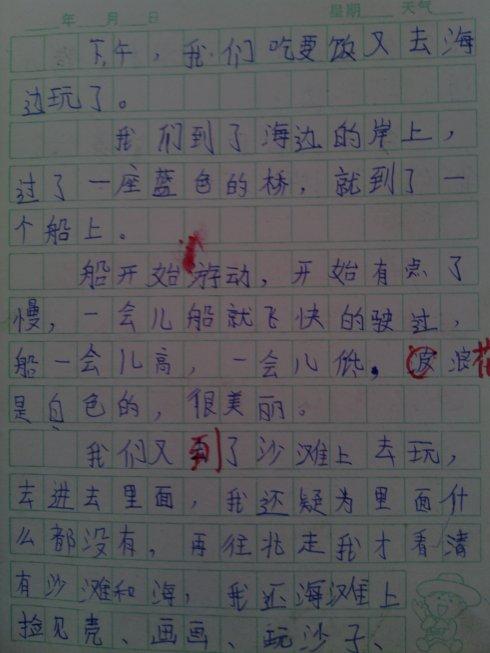 年 月 日 星期 天气
下午，我们吃要饭又去海
边玩了。
我们到了海边的岸上，
过了一座蓝色的桥，就到了一
个船上。
船开始游动，开始有点了
慢，一会儿船就飞快的驶过，
船一会儿高，一会儿低。波浪花
是白色的，很美丽。
我们又到了沙滩上去玩，
去进去里面，我还疑为里面什
么都没有，再往北走我才看清
有沙滩和海，我还海滩上
捡见壳、画画、玩沙子、